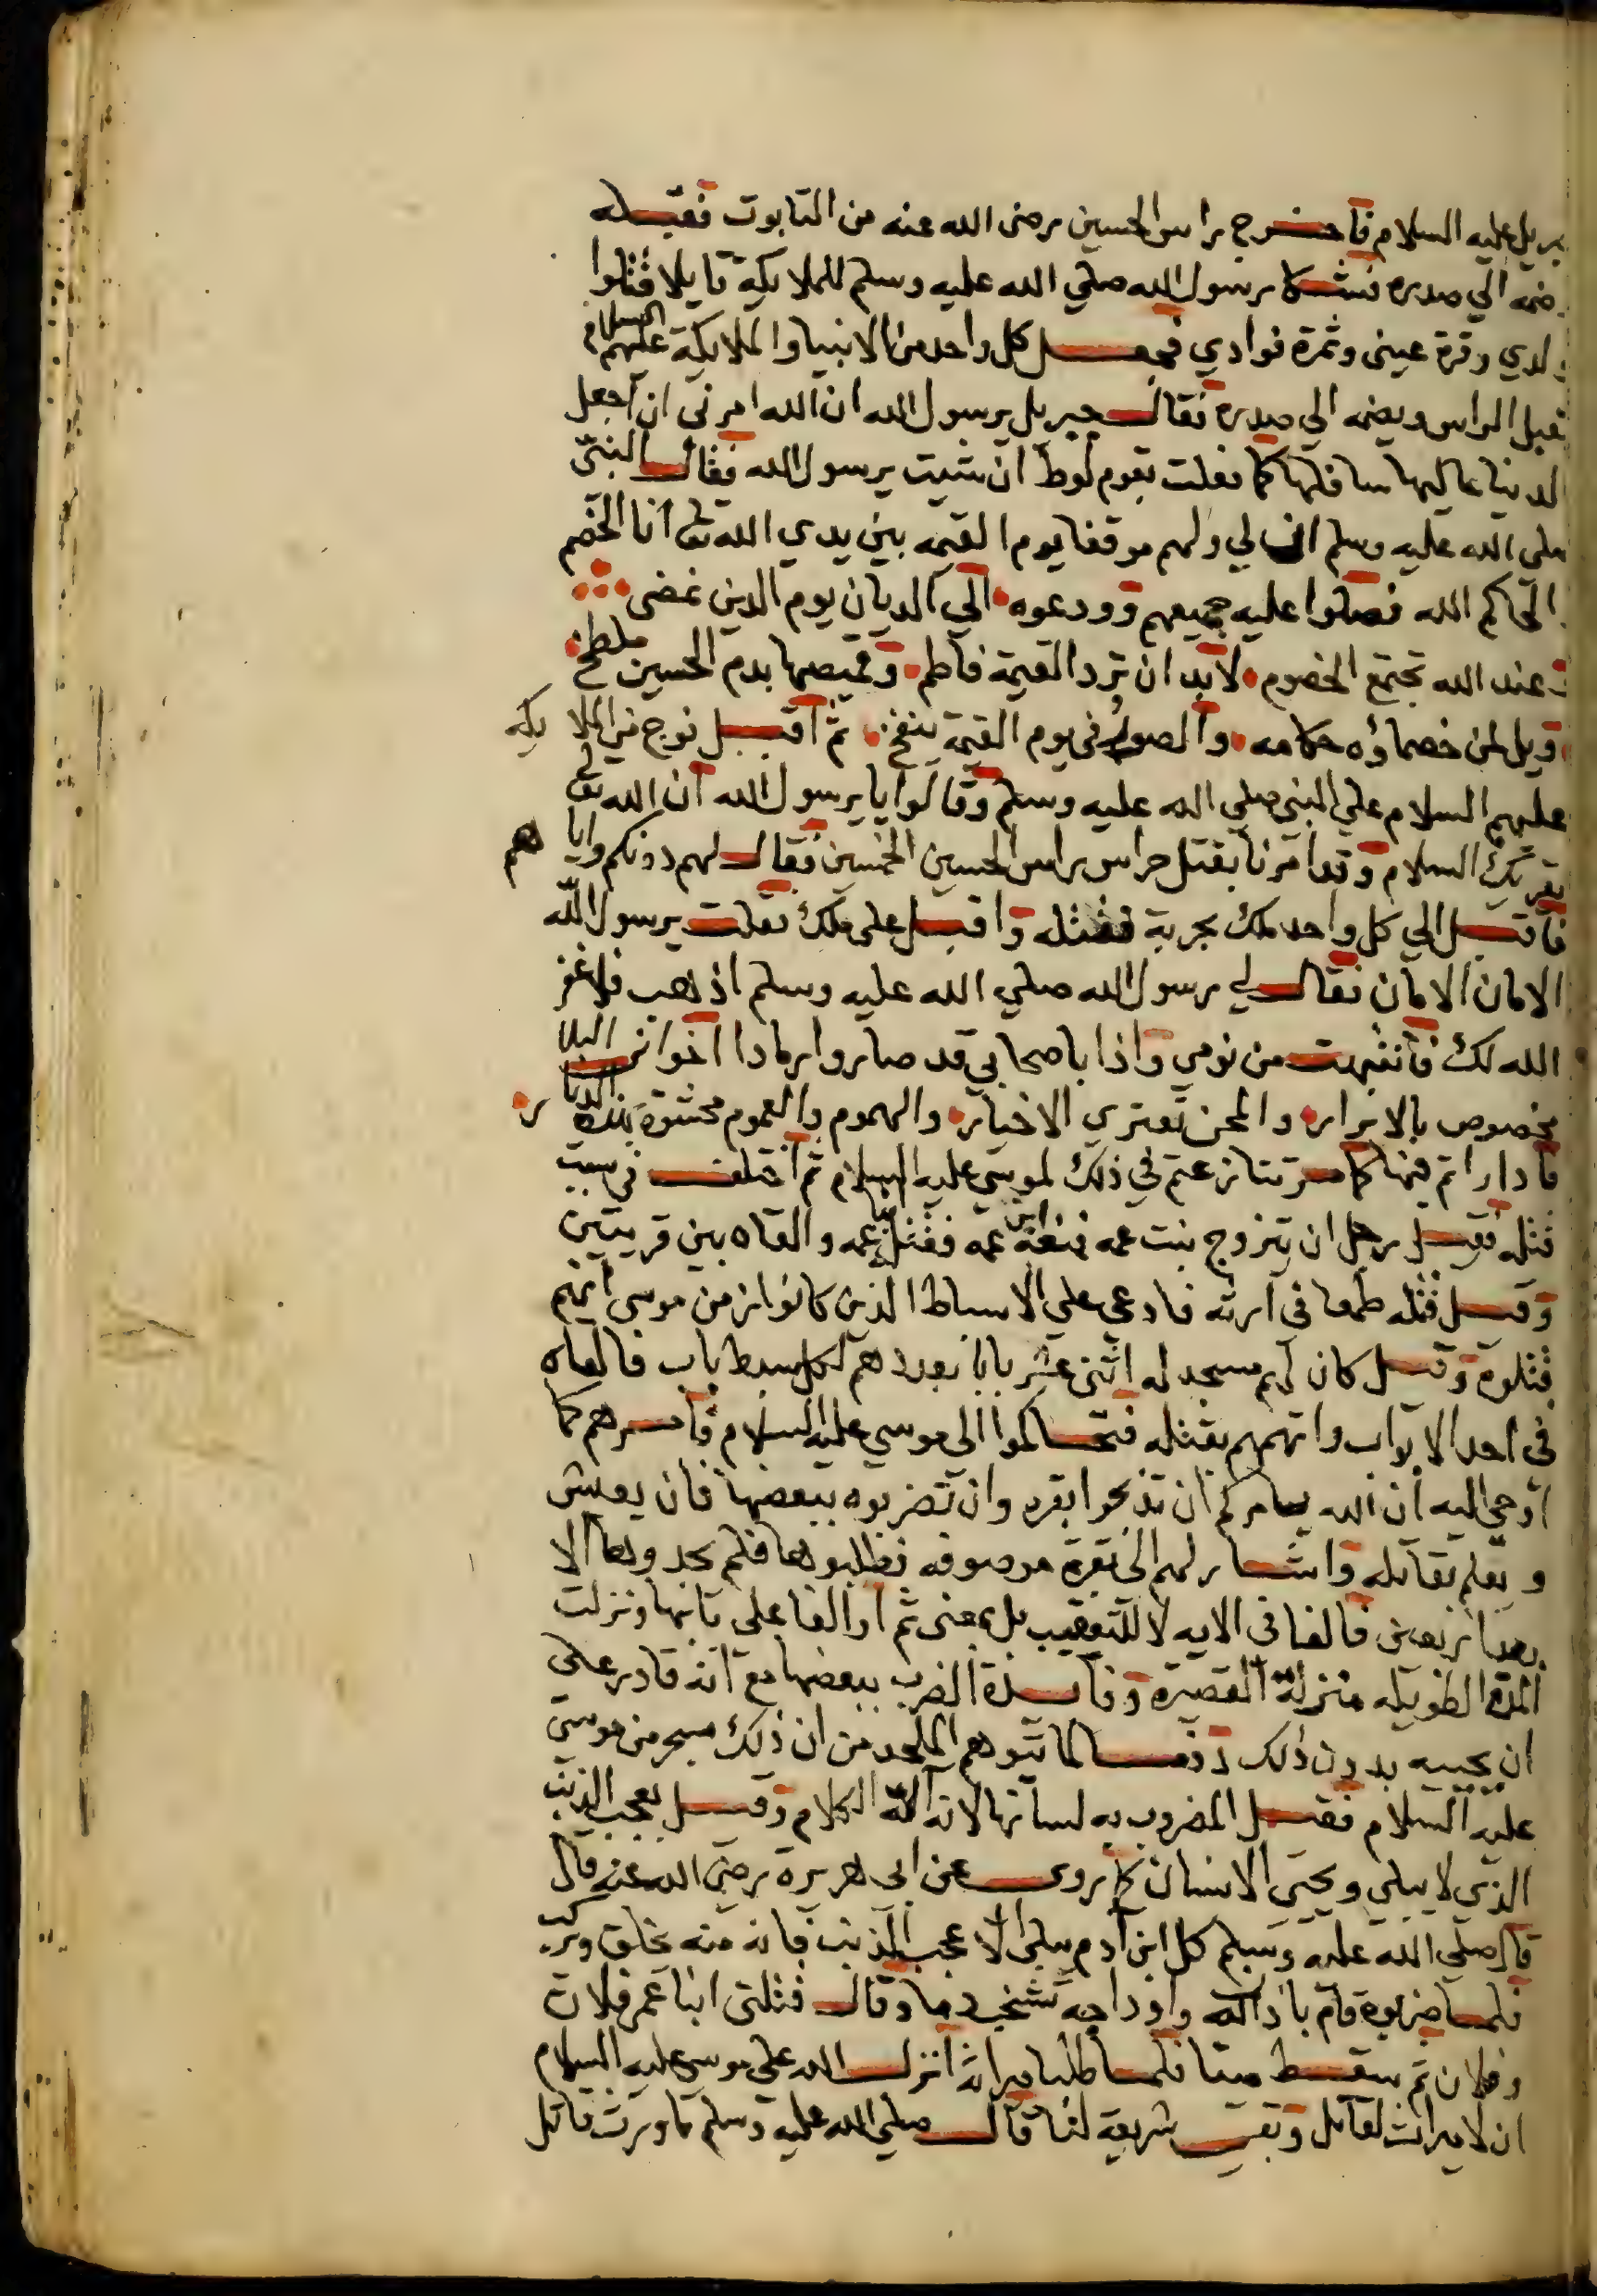 بريل عليه السلام فاخرج راس الحسين رضى الله عنه من التابوت فقبله
وضمه الي صدره فشكا رسول الله صلي الله عليه وسلم للملايكة قايلا قتلوا
ولدي وقرة عينى وثمرة فوادي فجعل كل واحد من الانبيا والملايكة عليهم السلام
يقبل الراس ويضمه الي صدره فقال جبريل يرسول الله ان الله امرنى ان اجعل
الدنيا عاليها سافلها كما فعلت بقوم لوط ان شيت يرسول الله فقال النبى
صلى الله عليه وسلم ان لي ولهم موقفا يوم القيمه بين يدي الله تعا انا الخصم
والحاكم الله فصلوا عليه جميعهم وودعوه الي الديان يوم الدين نمضى
وعند الله تجتمع الخصوم لابد ان ترد القيمة فاطم وقميصها بدم الحسين ملطخ
ويل لمن خصماؤه حكامه والصور فى يوم القيمة ينفخ ثم اقبل فوج من الملايكه
عليهم السلام علي النبى صلي الله عليه وسلم وقالوا يا يرسول الله ان الله تعا
يقريك السلام وقد امرنا بقتل حراس براس الحسين الخمسين فقال لهم دونكم واياهم
فاقبل الي كل واحد ملك بحربة فقتله واقبل على ملك فقلت يرسول الله
الامان الامان فقال لي رسول الله صلي الله عليه وسلم اذهب فلا غفر
الله لك فانتبهت من نومي واذا باصحابي قد صاروا رمادا اخوانى البلا
مخصوص بالابرار والمحن تعتري الاخيار والهموم والغموم محشوة بهذه الدار
فادارا تم فيها كما مر تنازعتم في ذلك لموسي عليه السلام ثم اختلف في سبب
قتله فقيل رجل ان يتزوج بنت عمه فمنعه ابن عمه فقتله ابنا عمه والقاه بين قريتين
وقيل قتله طمعا في ارثه فادعى علي الاسباط الذين كانوا زمن موسى انهم
قتلوه وقيل كان لهم مسجد له اثنى عشر بابا بعددهم لكل سبط باب فالقاه
فى احد الابواب واتهمهم بقتله فتحاكموا الى موسي عليه السلام فامرهم كما
اوحي اليه ان الله يامركم ان تذبحوا بقره وان تضربوه ببعضها فان يعيش
ويعلم بقاتله واشار لهم الى بقرة موصوفه فطلبوها فلم يجدوها الا
بعد اربعين فالفا فى الايه لا للتعقيب بل بمعنى ثم او الفا على بابها ونزلت
المدة الطويله منزلة القصيرة وفايدة الضرب ببعضها مع انه قادر على
ان يحييه بدون ذلك دفعا لما يتوهم الملحد من ان ذلك سحر من موسى
عليه السلام فقيل المضروب به لسانها لانه الة الكلام وقيل بعجب الذنب
الذي لا يبلي ويحيى الانسان كما روى عن ابي هريرة رضى الله عنه قال
قال صلى الله عليه وسلم كل ابن آدم يبلى الا عجب الذنب فانه منه يخلق ويركب
فلما ضربوه قام باذن الله واوداجه تشخب دما وقال قتلنى ابنا عم فلان
وفلان ثم سقط ميتا فلما طلبا ميراثه انزل الله علي موسي عليه السلام
ان لا ميراث لقاتل وبقيت شريعة لنا قال صلي الله عليه وسلم ما ورث قاتل